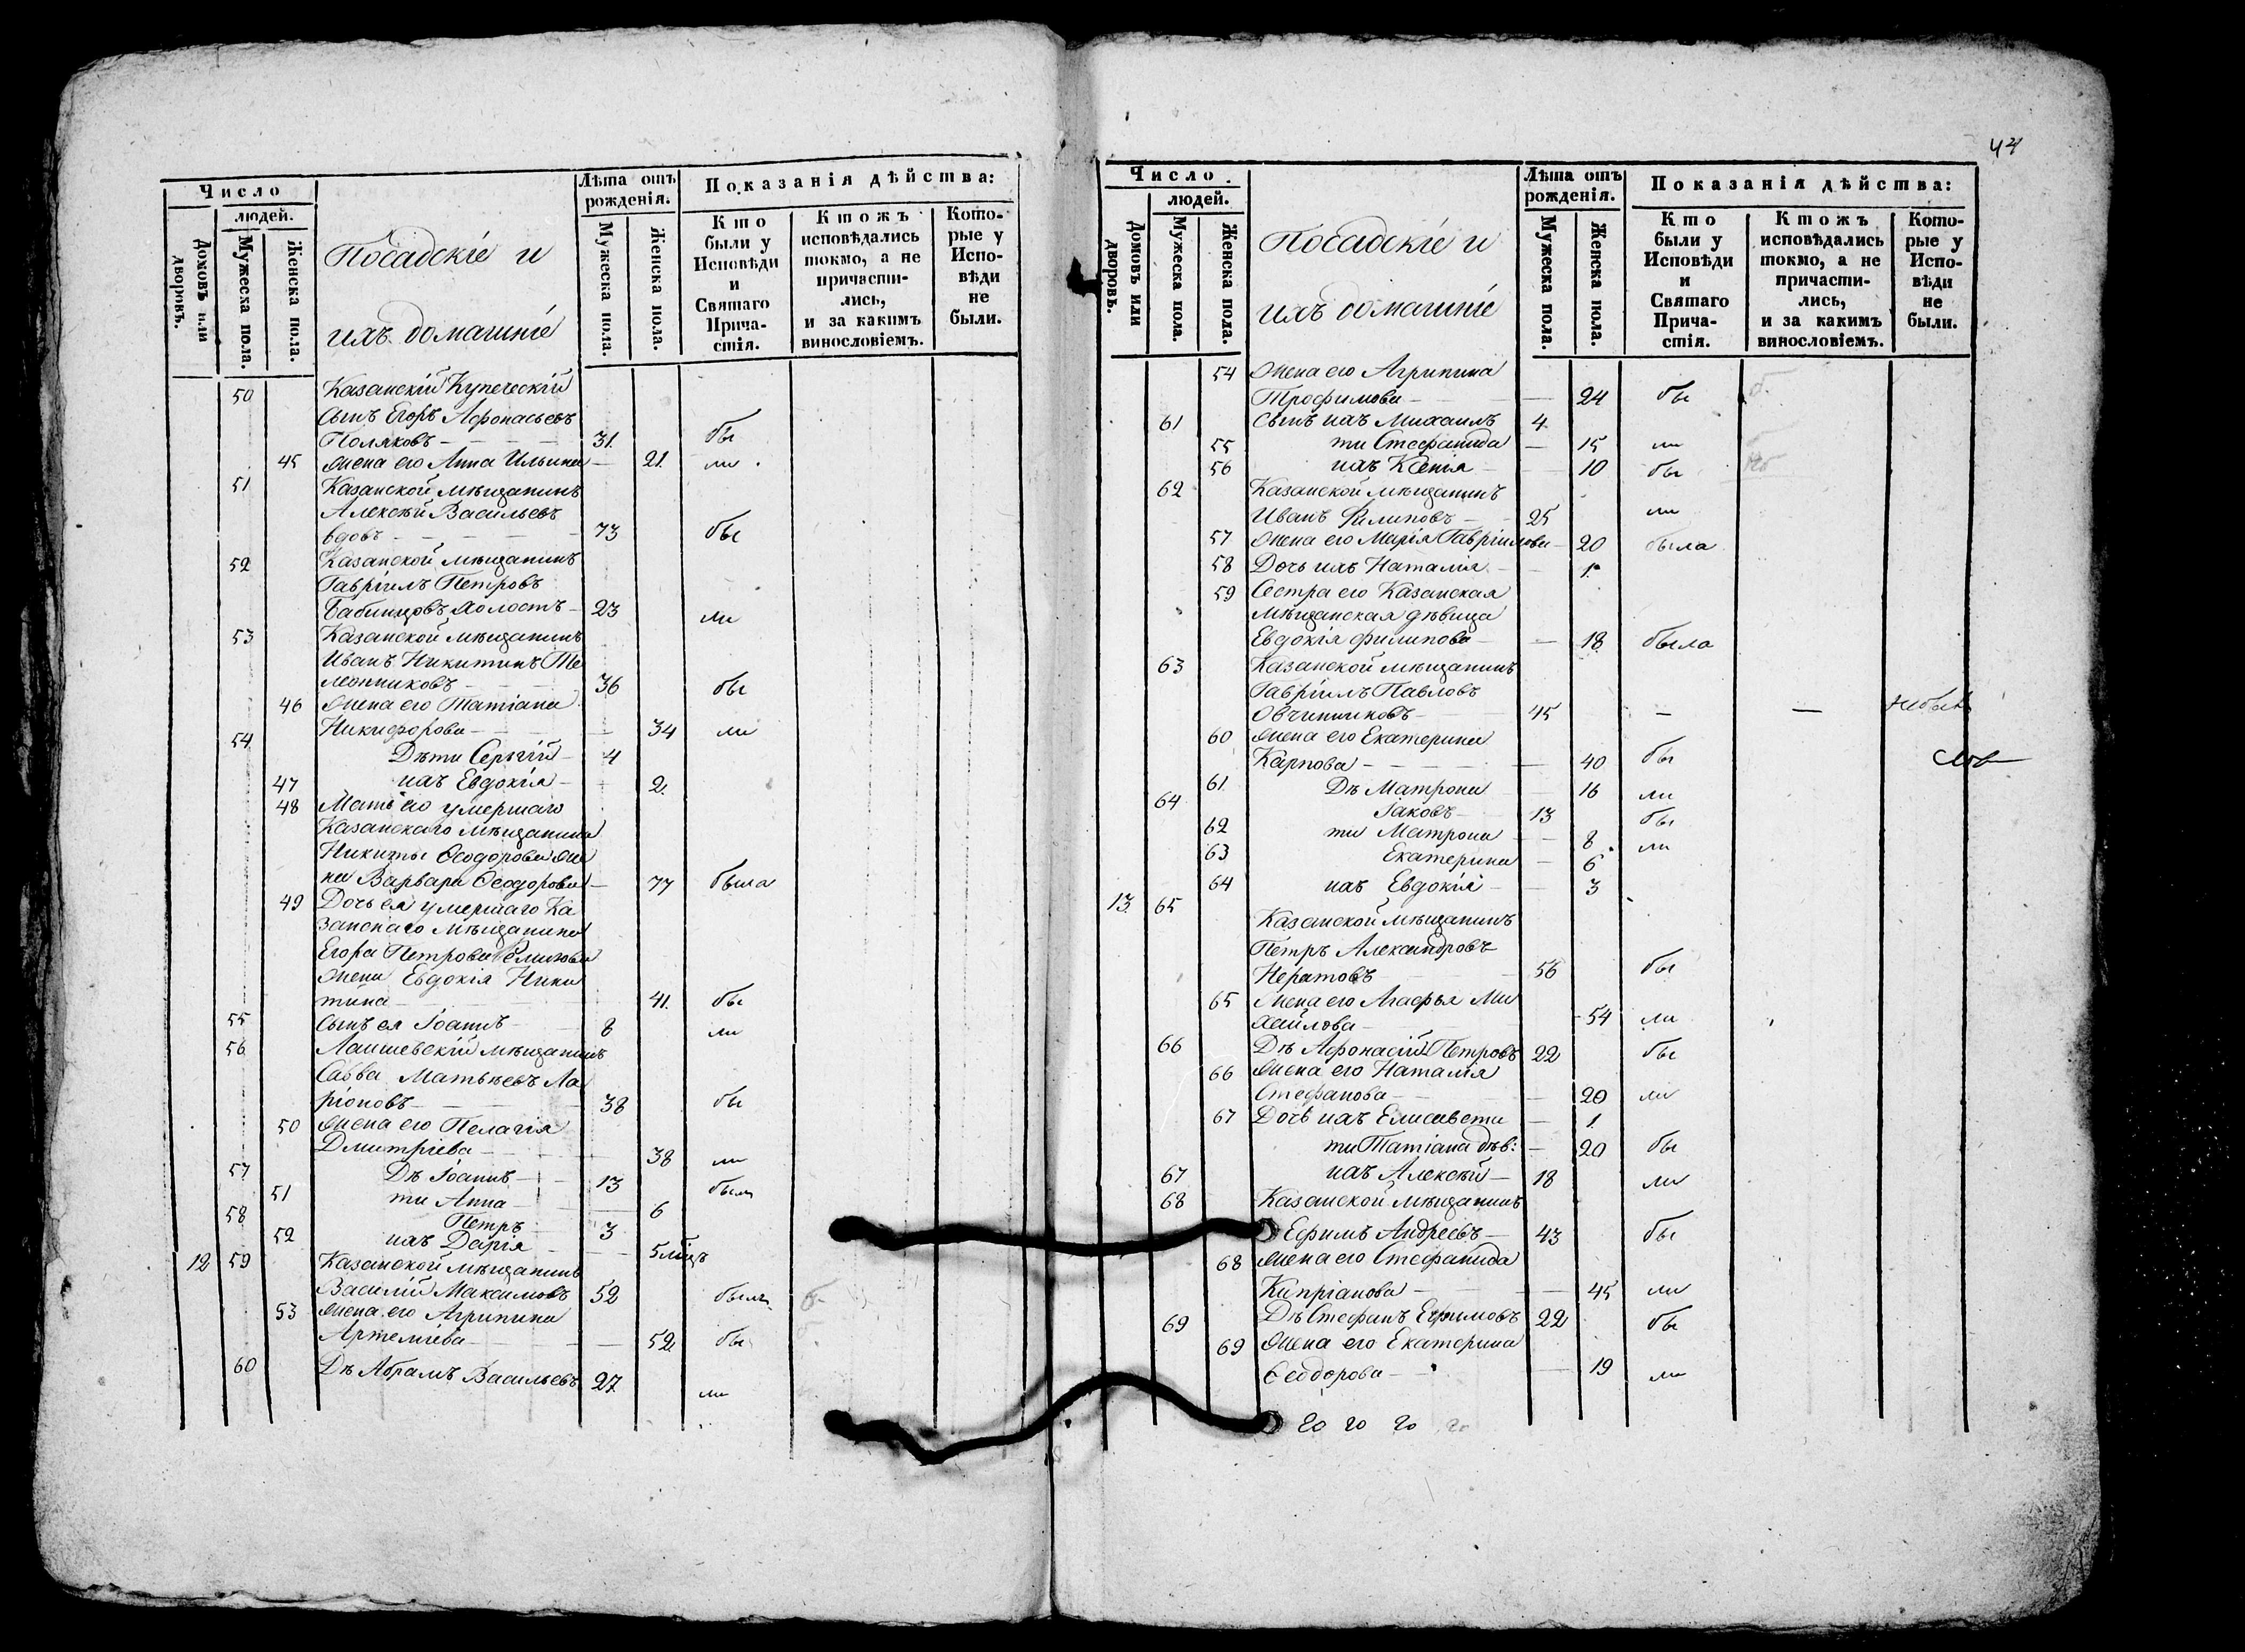 Число
людей.
Домовъ или дворовъ.
Мужеска пола.
Женска пола.
Посадскіе и
ихъ домашніе
Лѣта отъ рожденія.
Мужеска пола.
Женска пола.
Показанія дѣйства:
Кто были у Исповѣди и Святаго Прича-стія.
Ктожъ исповѣдались токмо, а не причасти-лись, и за какимъ винословіемъ.
Кото-рые у Испо-вѣди не были.
50 Казанскій Купеческій
Сынъ Егоръ Афонасьевъ
Поляковъ 31. бы
45 жена его Анна Ильина 21. ли
51 Казанской мѣщанинъ
Алексѣй Васильевъ
вдовъ 73 бы
52 Казанской мѣщанинъ
Гавріилъ Петровъ
Бабинцовъ холостъ 23 ли
53 Казанской мѣщанинъ
Иванъ Никитинъ Те
леонниковъ 36 бы
46 жена его Татіана
Никифорова 34 ли
54 Дѣти Сергій 4
47 ихъ Евдокія 2.
48 Мать его умершаго
Казанскаго мѣщанина
Никиты Ѳеодорова же
на Варвара Ѳеодорова 77 была
49 Дочь ея умершаго Ка
занскаго мѣщанина
Егора Петрова
жена Евдокія Ники
тина 41. бы
55 Сынъ ея Іоаннъ 8 ли
56 Лаишевскій мѣщанинъ
Савва Матвѣевъ Ла
ріоновъ 38 бы
50 жена его Пелагія
Дмитріева 38 ли
57 Дѣ Іоаннъ 13 былъ
51 ти Анна 6
58 Петръ 3
52 ихъ Дарія 5 мѣсцъ
12 59 Казанской мѣщанинъ
Василій Максимовъ 52 былъ
53 жена его Агрипина
Артеміева 52 бы
60 Дѣ Абрамъ Васильевъ 27 ли
47
Число
людей.
Домовъ или дворовъ.
Мужеска пола.
Женска пола.
Посадскіе и
ихъ домашніе
Лѣта отъ рожденія.
Мужеска пола.
Женска пола.
Показанія дѣйства:
Кто были у Исповѣди и Святаго Прича-стія.
Ктожъ исповѣдались токмо, а не причасти-лись, и за какимъ винословіемъ.
Кото-рые у Испо-вѣди не были.
54 жена его Агрипина
Трофимова 24 бы
61 Сынъ ихъ Михаилъ 4
55 ти Стефанида 15 ли
56 ихъ Ксенія 10 бы
62 Казанской мѣщанинъ
Иванъ Филиповъ 25 ли
57 жена его Марія Гавріилова 20 была
58 Дочь ихъ Наталія 1.
59 Сестра его Казанская
мѣщанская дѣвица
Евдокія Филипова 18 была
63 Казанской мѣщанинъ
Гавріилъ Павловъ
Овчинниковъ 45 — — небылъ
60 жена его Екатерина
Карпова 40 бы
61 Дѣ Матрона 16 ли
64 Іаковъ 13 бы
62 ти Матрона 8 ли
63 Екатерина 6
64 ихъ Евдокія 3
13 65 Казанской мѣщанинъ
Петръ Александровъ
Нератовъ 56 бы
65 жена его Агафья Ми
хайлова 54 ли
66 Дѣ Афонасій Петровъ 22 бы
66 жена его Наталія
Стефанова 20 ли
67 Дочь ихъ Елисавета 1.
ти Татіана дѣв: 20 бы
67 ихъ Алексѣй 18 ли
68 Казанской мѣщанинъ
Ефимъ Андреевъ 43 бы
68 жена его Стефанида
Кипріанова 45 ли
69 Дѣ Стефанъ Ефимовъ 22 бы
69 жена его Екатерина
Ѳеодорова 19 ли